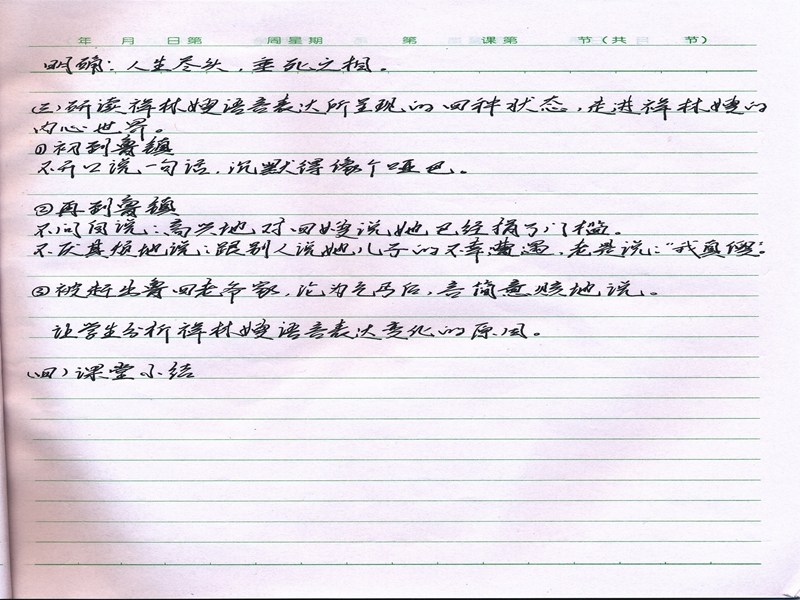 年 月 日第 周星期 第 课第 节(共 节)
明确：人生尽头，垂死之相。
(三)研读祥林嫂语言表达所呈现的四种状态，走进祥林嫂的
内心世界。
①初到鲁镇
不开口说一句话，沉默得像个哑巴。
②再到鲁镇
不问自说：高兴地对四婶说她已经捐了门槛。
不厌其烦地说：跟别人说她儿子的不幸遭遇，老是说：“我真傻”。
③被赶出鲁四老爷家，沦为乞丐后，言简意赅地说。
让学生分析祥林嫂语言表达变化的原因。
(四)课堂小结